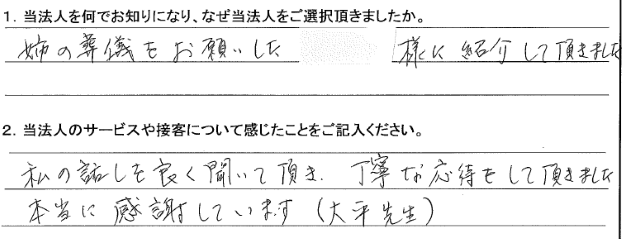 1. 当法人を何でお知りになり、なぜ当法人をご選択頂きましたか。
姉の葬儀をお願いした 様に紹介して頂きました
2. 当法人のサービスや接客について感じたことをご記入ください。
私の話しを良く聞いて頂き、丁寧な応待をして頂きました
本当に感謝しています(大平先生)